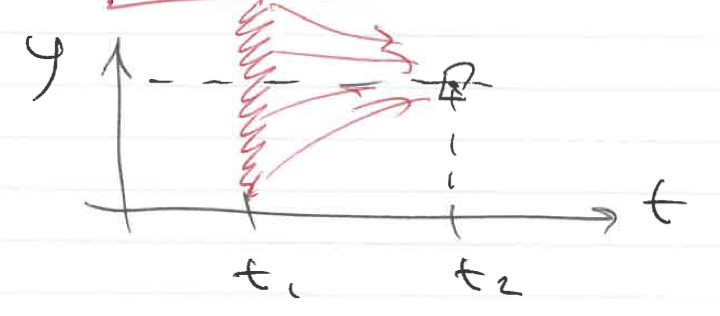 y
t
t₁ t₂